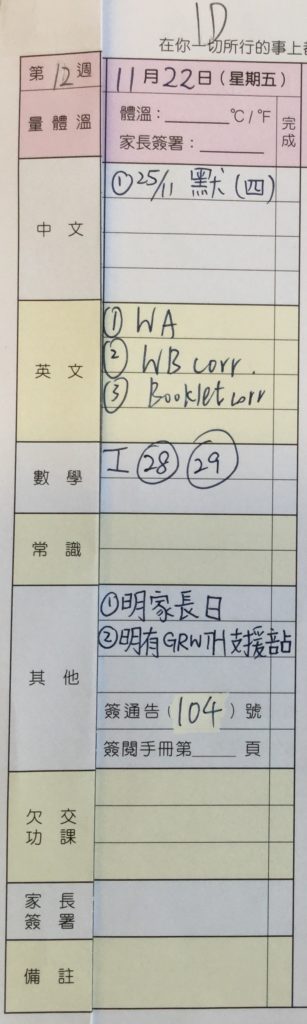 1D
在你一切所行的事上
第12週 11月22日(星期五)
量體溫 體溫：______°C/°F 完成
家長簽署：______
中文 ①25/11 默(四)
英文 ① WA
② WB corr.
③ Booklet corr
數學 工 ㉘ ㉙
常識
其他 ①明家長日
②明有GRWTH支援站
簽通告(104)號
簽閱手冊第____頁
欠交功課
家長簽署
備註